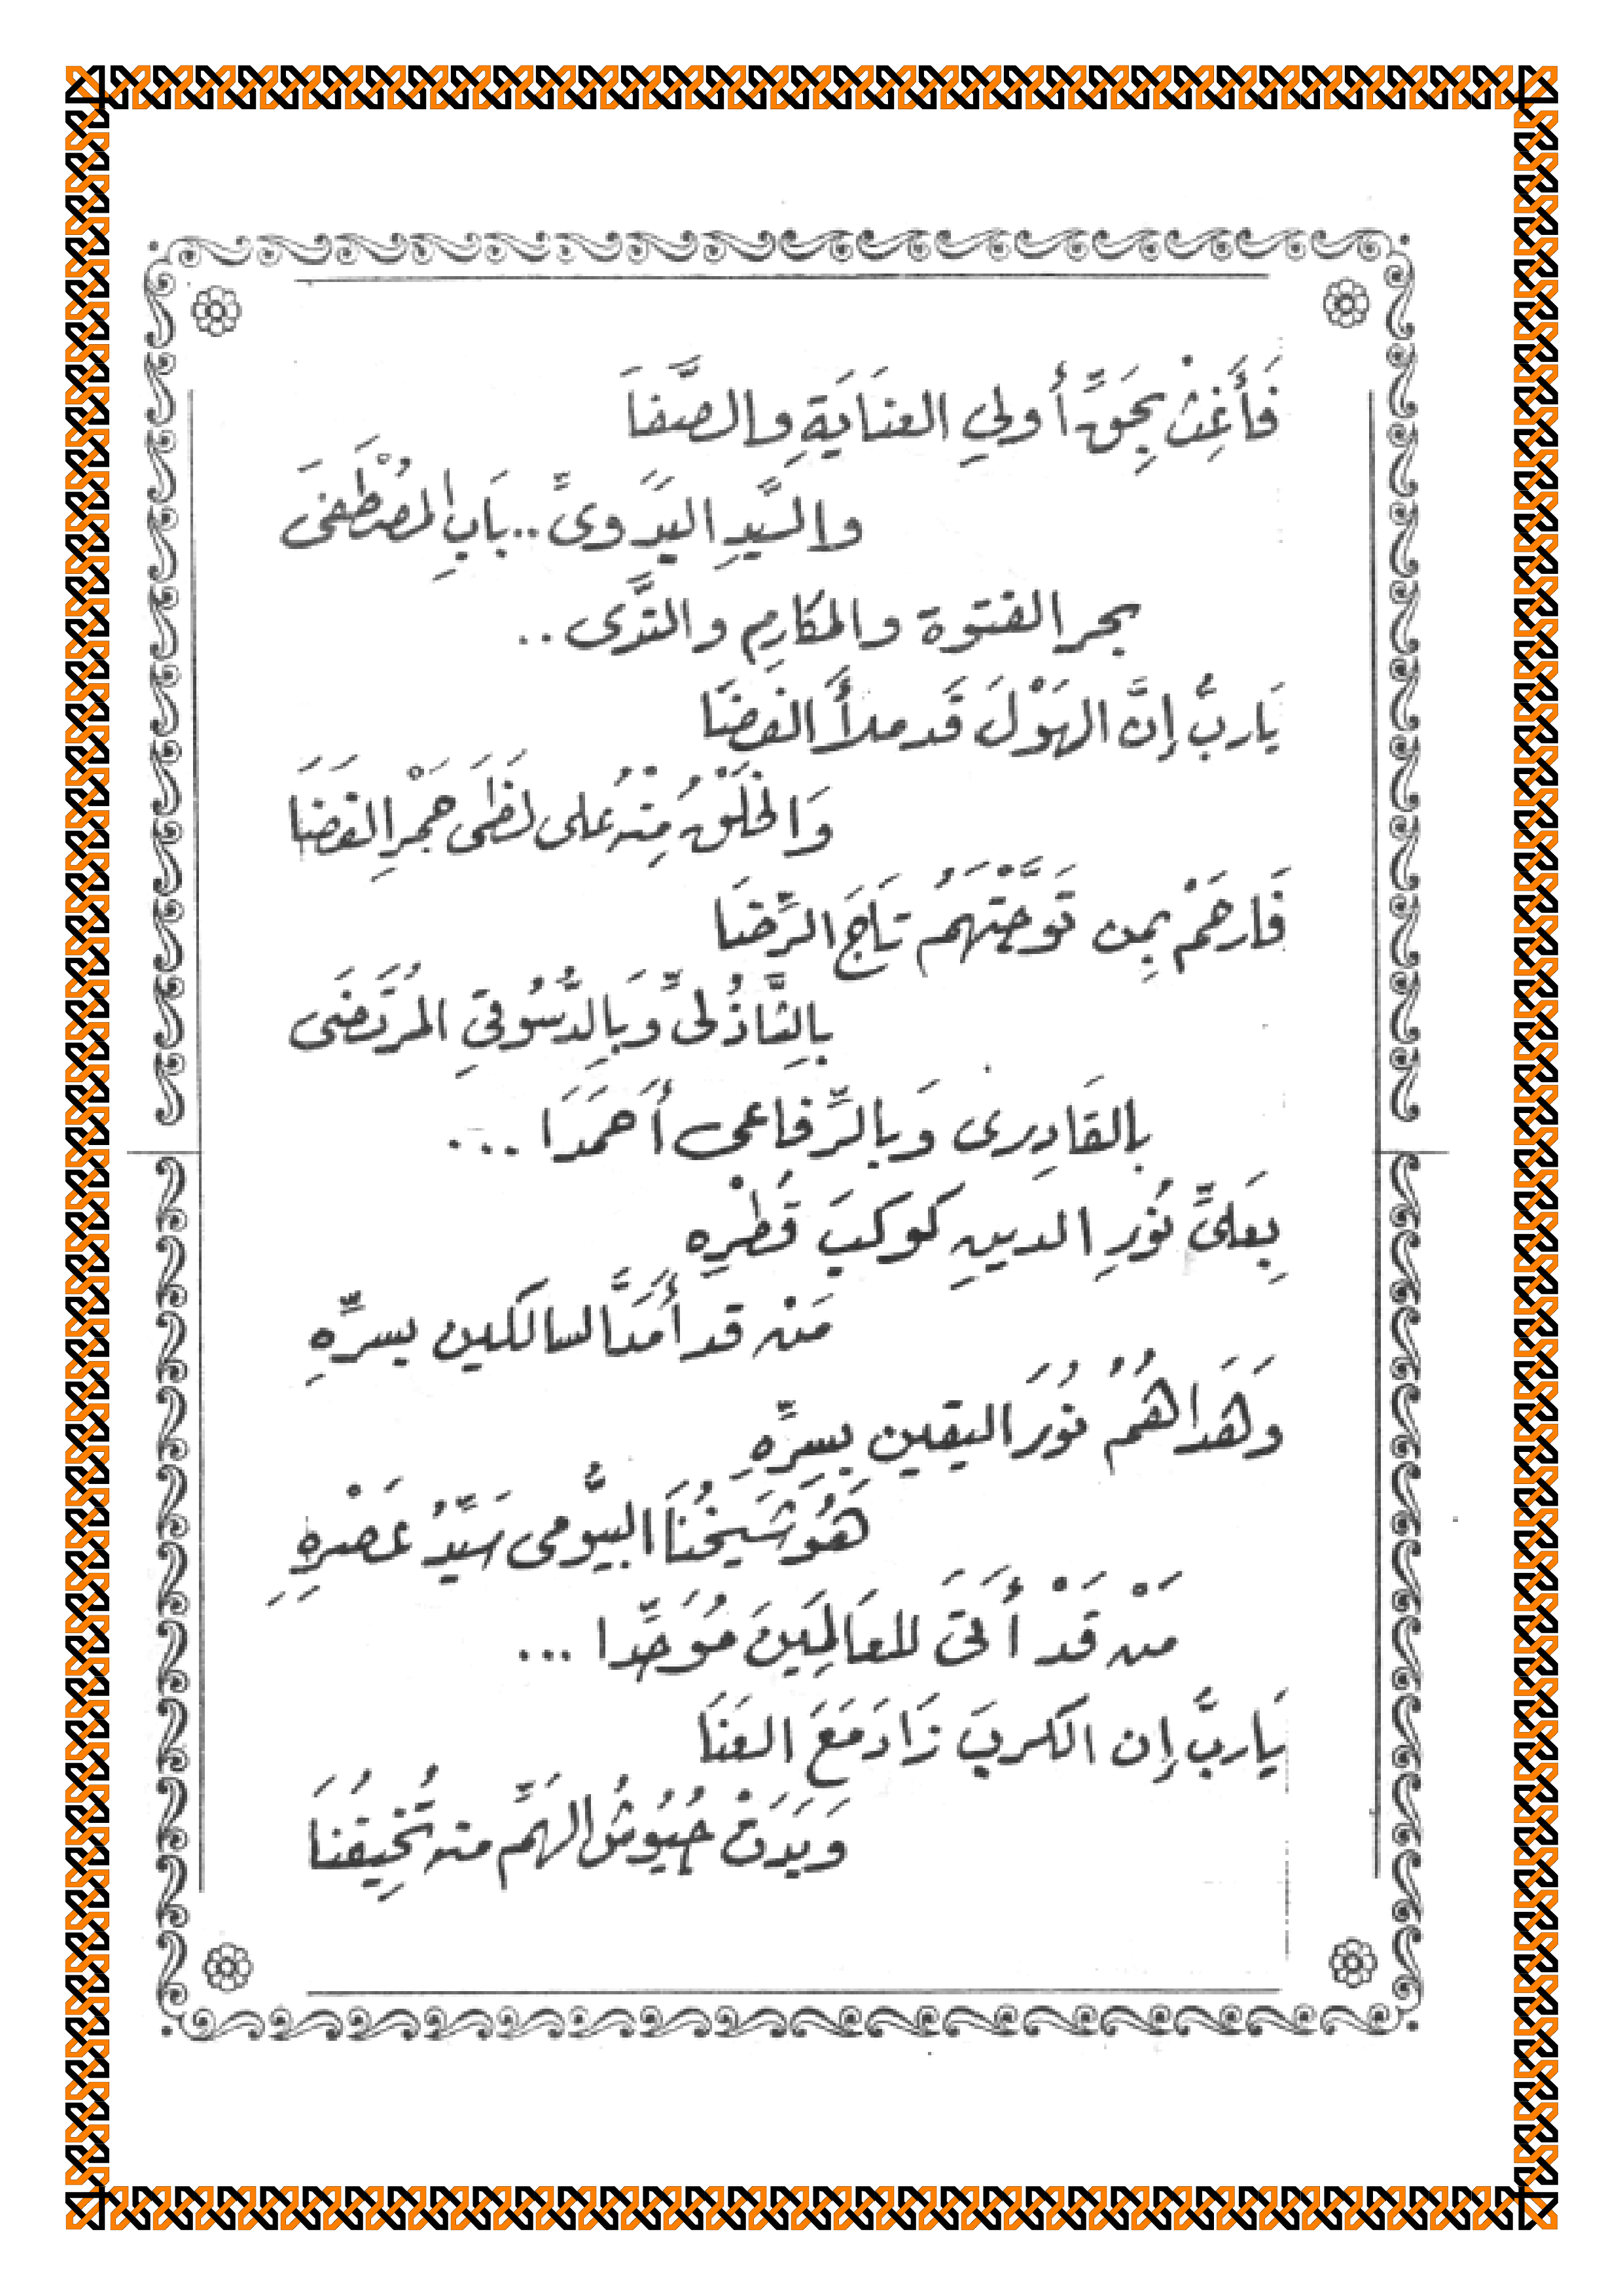 فَأَغِثْ بِحَقِّ أُولِي العِنَايَةِ والصَّفَا
والسَّيِّدِ البَدَوىِّ .. بَابِ المُصْطَفَى
بحر الفتوة والمكارِمِ والنَّدَى ..
يَاربُّ إنَّ الهَوْلَ قَد ملأَ الفَضَا
وَالخَلْقُ مِنْهُ على لَظَى جَمْرِ الغَضَا
فَارحَمْ بِمن تَوَّجْتَهُمُ تَاجَ الرِّضَا
بالشَّاذُلىِّ وَبِالدُّسُوقِي المُرتَضَى
بالقَادِرى وَبالرِّفاعى أَحمَدَا ...
بِعَلىِّ نُورِ الدينِ كوكبَ قُطْرِهِ
مَنْ قد أَمَدَّ السالكين بسرِّهِ
وَهَدَاهُمُ نُورَ اليقين بِسِرِّهِ
هَوُ شَيخُنَا البيُّومى سَيِّدُ عَصْرِهِ
مَنْ قَدْ أَتَى للعَالَمِينَ مُوَحِّدا ...
يَاربَّ إن الكربَ زَادَ مَعَ العَنَا
وَبَدَتْ جُيُوشُ الهَمِّ منه تُخِيفُنَا